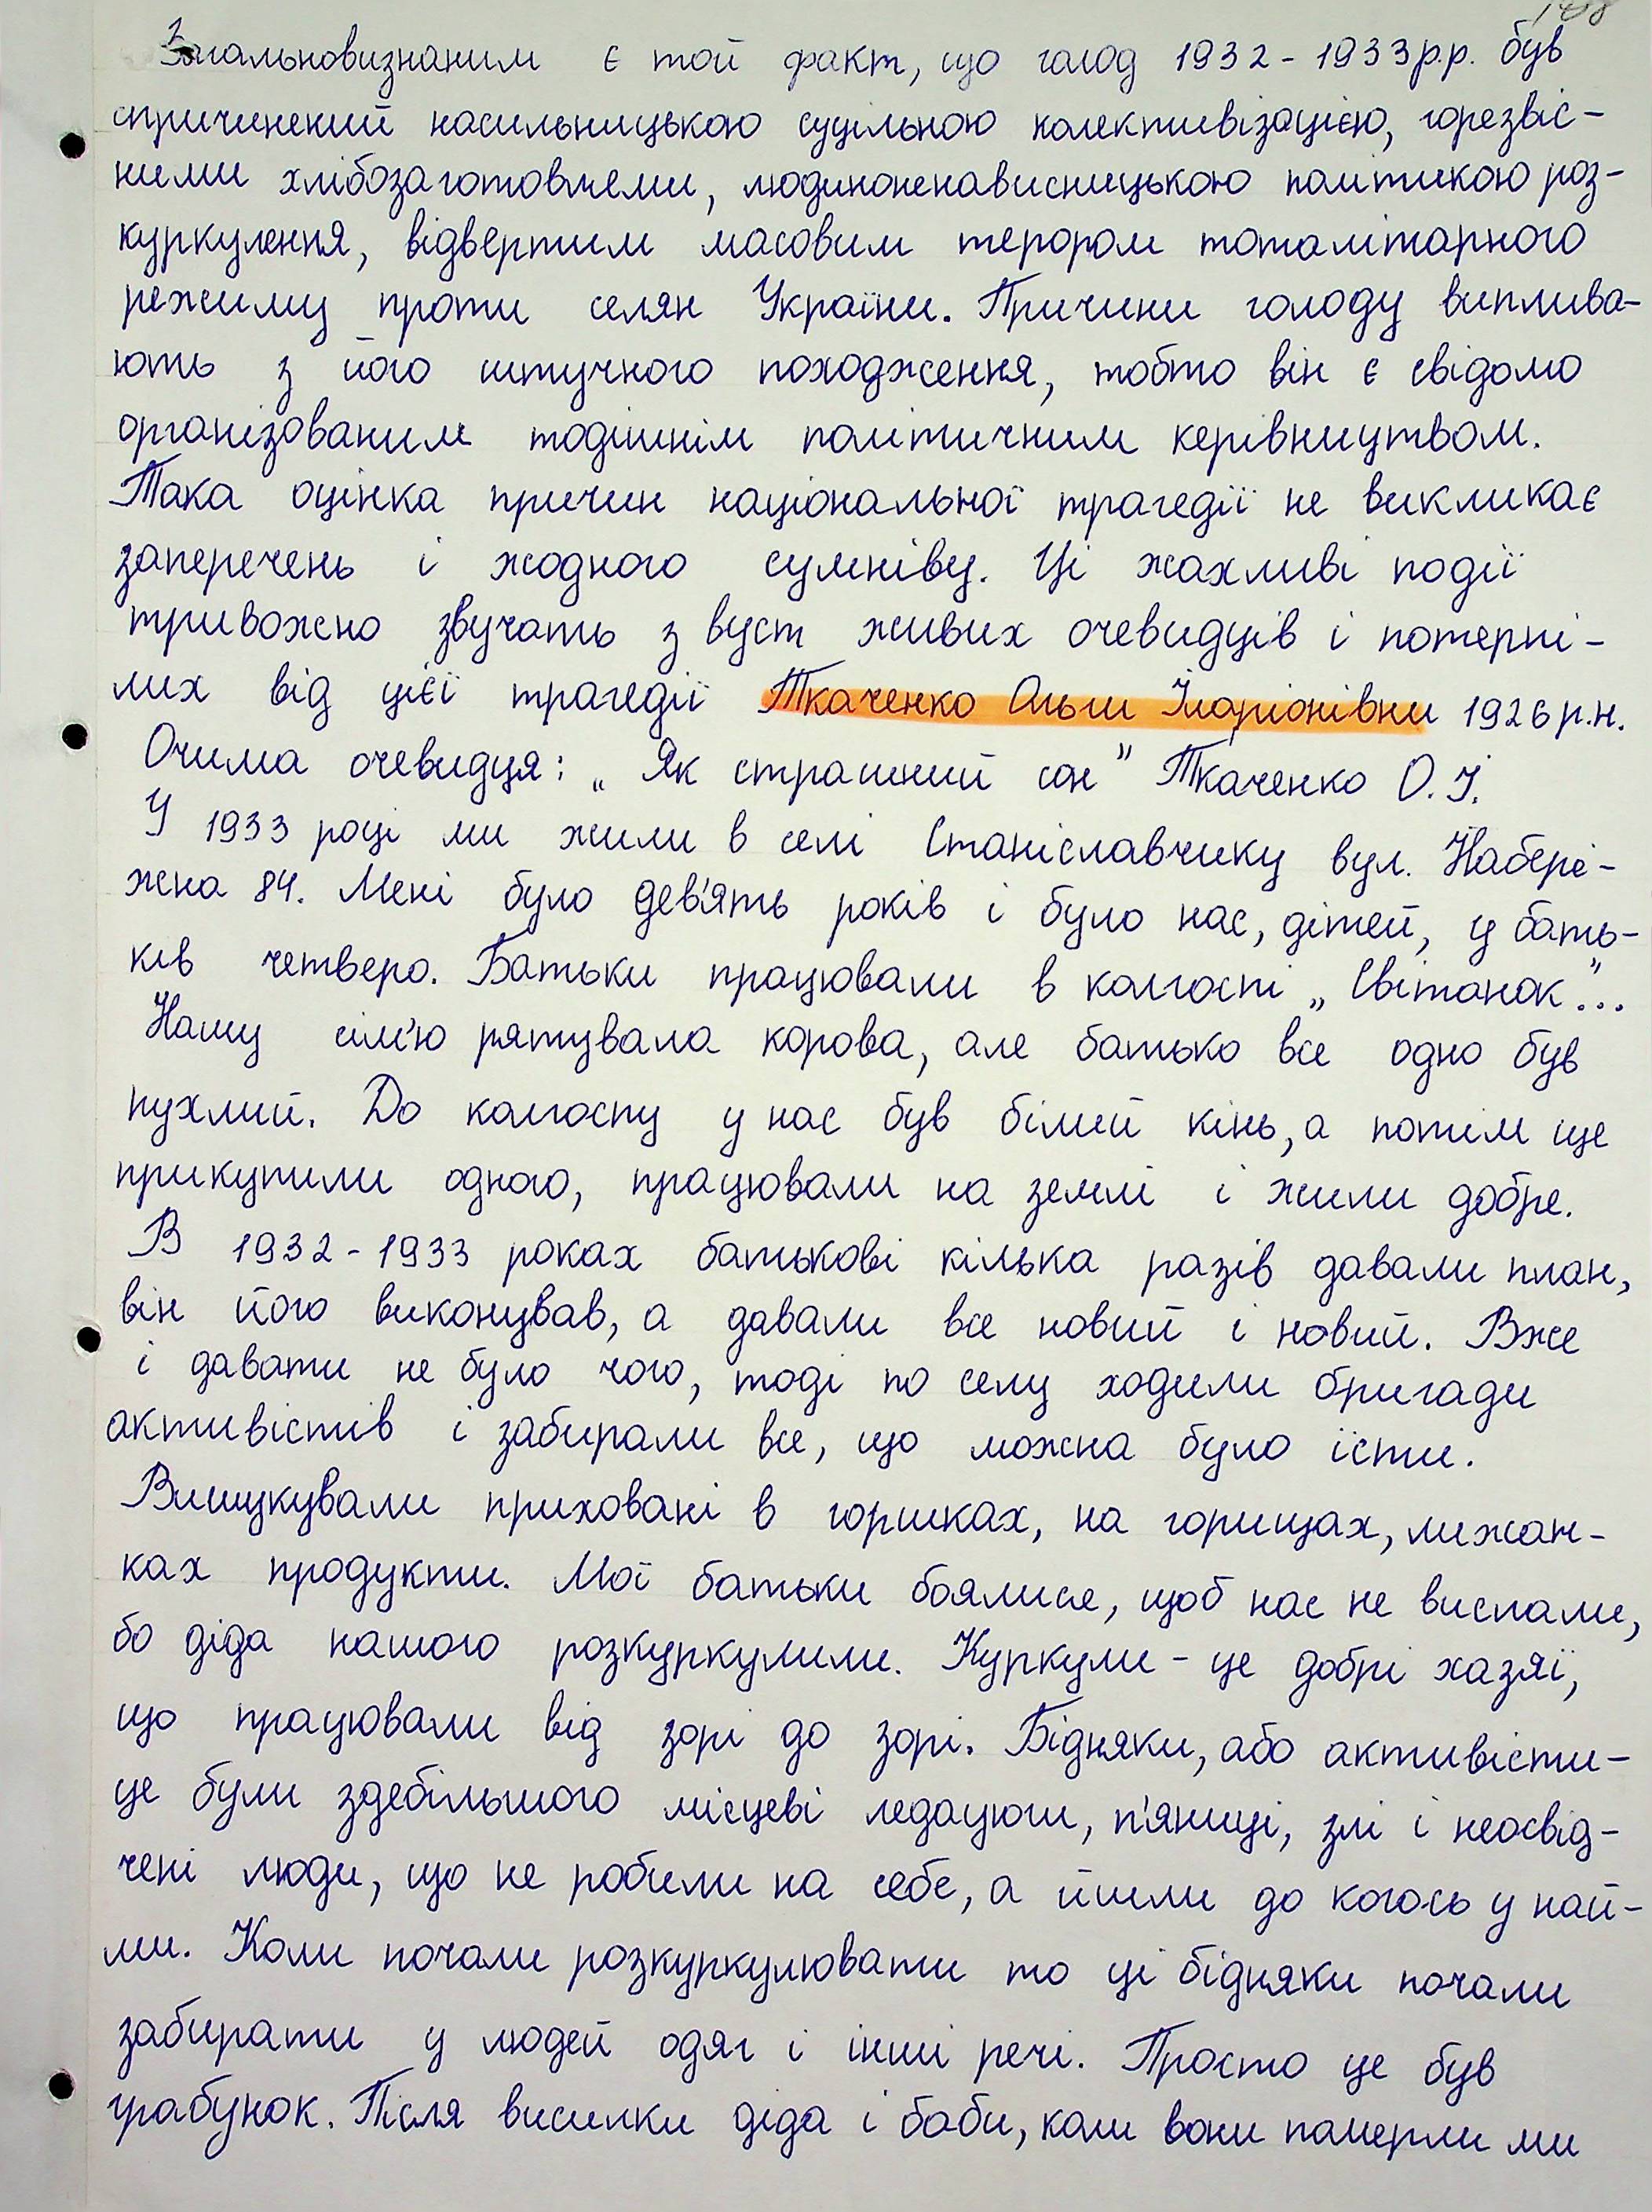 Загальновизнаним є той факт, що голод 1932-1933р.р. був
спричинений насильницькою суцільною колективізацією, горезвіс-
ними хлібозаготовлями, людиноненависницькою політикою роз-
куркулення, відвертим масовим терором тоталітарного
режиму проти селян України. Причини голоду виплива-
ють з його штучного походження, тобто він є свідомо
організованим тодішнім політичним керівництвом.
Така оцінка причин національної трагедії не викликає
заперечень і жодного сумніву. Ці жахливі події
тривожно звучать з вуст живих очевидців і потерпі-
лих від цієї трагедії Ткаченко Ольги Іларіонівни 1926р.н.
Очима очевидця: „Як страшний сон" Ткаченко О.І.
У 1933 році ми жили в селі Станіславчику вул. Набері-
жна 84. Мені було дев'ять років і було нас, дітей, у бать-
ків четверо. Батьки працювали в колгоспі „Світанок"...
Нашу сім'ю рятувала корова, але батько все одно був
пухлий. До колгоспу у нас був білий кінь, а потім ще
прикупили одного, працювали на землі і жили добре.
В 1932-1933 роках батькові кілька разів давали план,
він його виконував, а давали все новий і новий. Вже
і давати не було чого, тоді по селу ходили бригади
активістів і забирали все, що можна було їсти.
Вишукували приховані в горшках, на горищах, лежан-
ках продукти. Мої батьки боялися, щоб нас не виспали,
бо діда нашого розкуркулили. Куркули - це добрі хазяї,
що працювали від зорі до зорі. Бідняки, або активісти-
це були здебільшого місцеві ледацюги, п'яниці, злі і неосвід-
чені люди, що не робили на себе, а йшли до когось у най-
ми. Коли почали розкуркулювати то ці бідняки почали
забирати у людей одяг і інші речі. Просто це був
грабунок. Після висилки діда і баби, коли вони померли ми